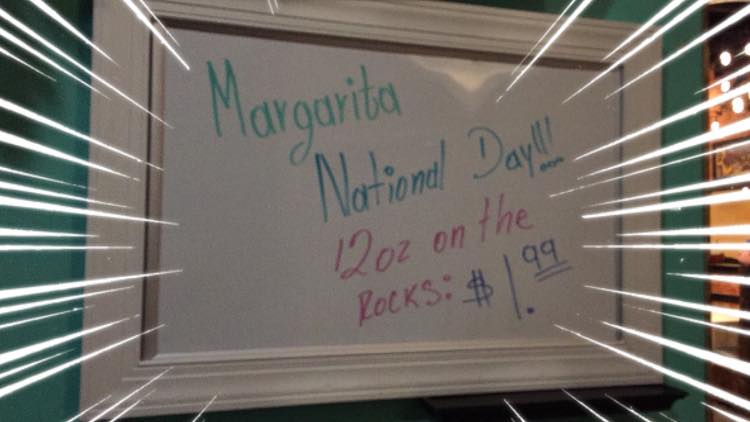 Margarita
National Day!!!
12oz on the
ROCKS: $1.99